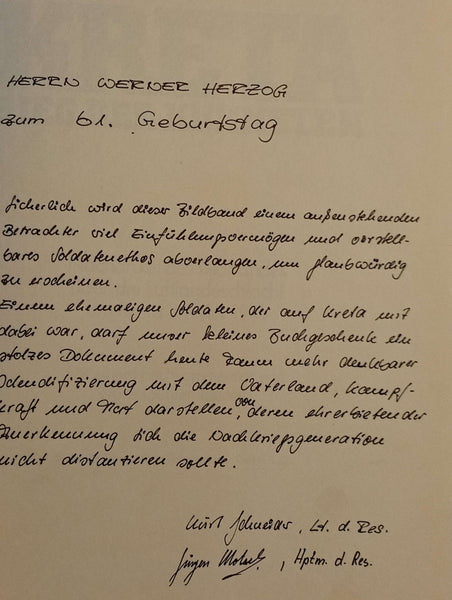 HERRN WERNER HERZOG
zum 61. Geburtstag
Sicherlich wird dieser Bildband einem außenstehenden
Betrachter viel Einfühlungsvermögen und vorstell-
bares Soldatenethos abverlangen, um glaubwürdig
zu erscheinen.
Einem ehemaligen Soldaten, der auf Kreta mit
dabei war, darf unser kleines Buchgeschenk ein
stolzes Dokument heute kaum mehr denkbarer
Idendifizierung mit dem Vaterland, Kampf-
kraft und Mut darstellen, von deren ehrerbietender
Anerkennung sich die Nachkriegsgeneration
nicht distanzieren sollte.
Kurt Schneider, Lt. d. Res.
Jürgen , Hptm. d. Res.